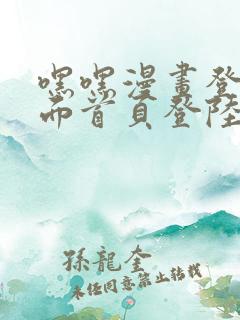 嘿嘿漫畫登
而首頁登陸
孫龍奎
未經同意禁止轉載